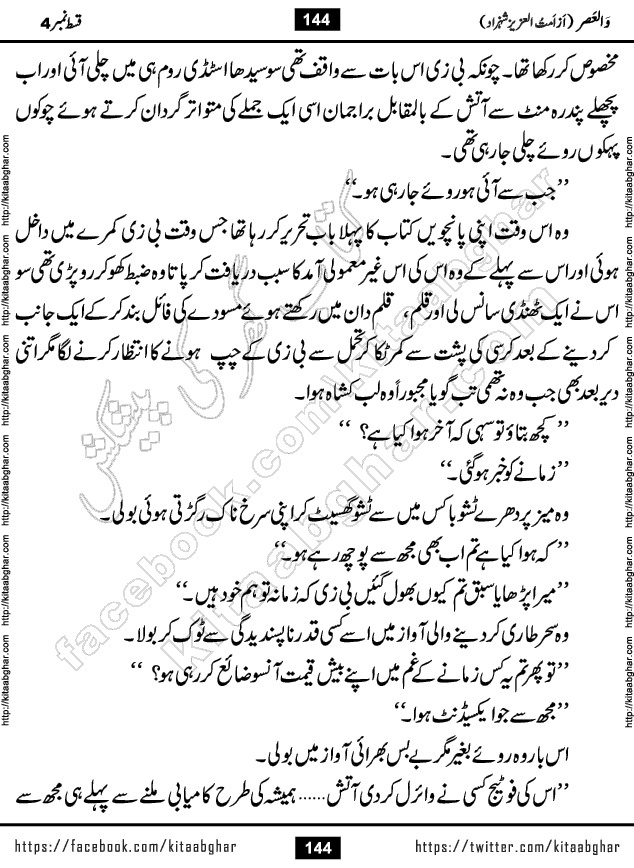 وَالعَصر (از اُمتُ العزیز شہزاد) 144 قسط نمبر 4
مخصوص کر رکھا تھا۔ چونکہ بی زی اس بات سے واقف تھی سو سیدھا اسٹڈی روم ہی میں چلی آئی اور اب
پچھلے پندرہ منٹ سے آتش کے بالمقابل براجمان اسی ایک جملے کی متواتر گردان کرتے ہوئے چوکوں
پہکوں روئے چلی جا رہی تھی۔
”جب سے آئی ہو روئے جا رہی ہو۔“
وہ اس وقت اپنی پانچویں کتاب کا پہلا باب تحریر کر رہا تھا جس وقت بی زی کمرے میں داخل
ہوئی اور اس سے پہلے کے وہ اس کی اس غیر معمولی آمد کا سبب دریافت کر پاتا وہ ضبط کھو کر رو پڑی تھی سو
اس نے ایک ٹھنڈی سانس لی اور قلم، قلم دان میں رکھتے ہوئے مسودے کی فائل بند کر کے ایک جانب
کر دینے کے بعد کرسی کی پشت سے کمر ٹکا کر تحمل سے بی زی کے چپ ہونے کا انتظار کرنے لگا مگر اتنی
دیر بعد بھی جب وہ نہ تھمی تب گویا مجبوراً وہ لب کشاہ ہوا۔
”کچھ بتاؤ تو سہی کہ آخر ہوا کیا ہے؟“
”زمانے کو خبر ہو گئی۔“
وہ میز پر دھرے ٹشو باکس میں سے ٹشو گھسیٹ کر اپنی سرخ ناک رگڑتی ہوئی بولی۔
”کہ ہوا کیا ہے تم اب بھی مجھ سے پوچھ رہے ہو۔“
”میرا پڑھایا سبق تم کیوں بھول گئیں بی زی کہ زمانہ تو ہم خود ہیں۔“
وہ سحر طاری کر دینے والی آواز میں اسے کسی قدر ناپسندیدگی سے ٹوک کر بولا۔
”تو پھر تم یہ کس زمانے کے غم میں اپنے بیش قیمت آنسو ضائع کر رہی ہو؟“
”مجھ سے جو ایکسیڈنٹ ہوا۔“
اس بار وہ روئے بغیر مگر بے بس بھرائی آواز میں بولی۔
”اس کی فوٹیج کسی نے وائرل کر دی آتش...... ہمیشہ کی طرح کامیابی ملنے سے پہلے ہی مجھ سے
https://facebook.com/kitaabghar 144 https://twitter.com/kitaabghar
http://kitaabghar.com http://kitaabghar.com http://kitaabghar.com http://kitaabghar.com http://kitaabghar.com http://kitaabghar.com
http://kitaabghar.com http://kitaabghar.com http://kitaabghar.com http://kitaabghar.com http://kitaabghar.com http://kitaabghar.com
کتاب گھر کی پیشکش
facebook.com/kitaabghar
kitaabghar.com